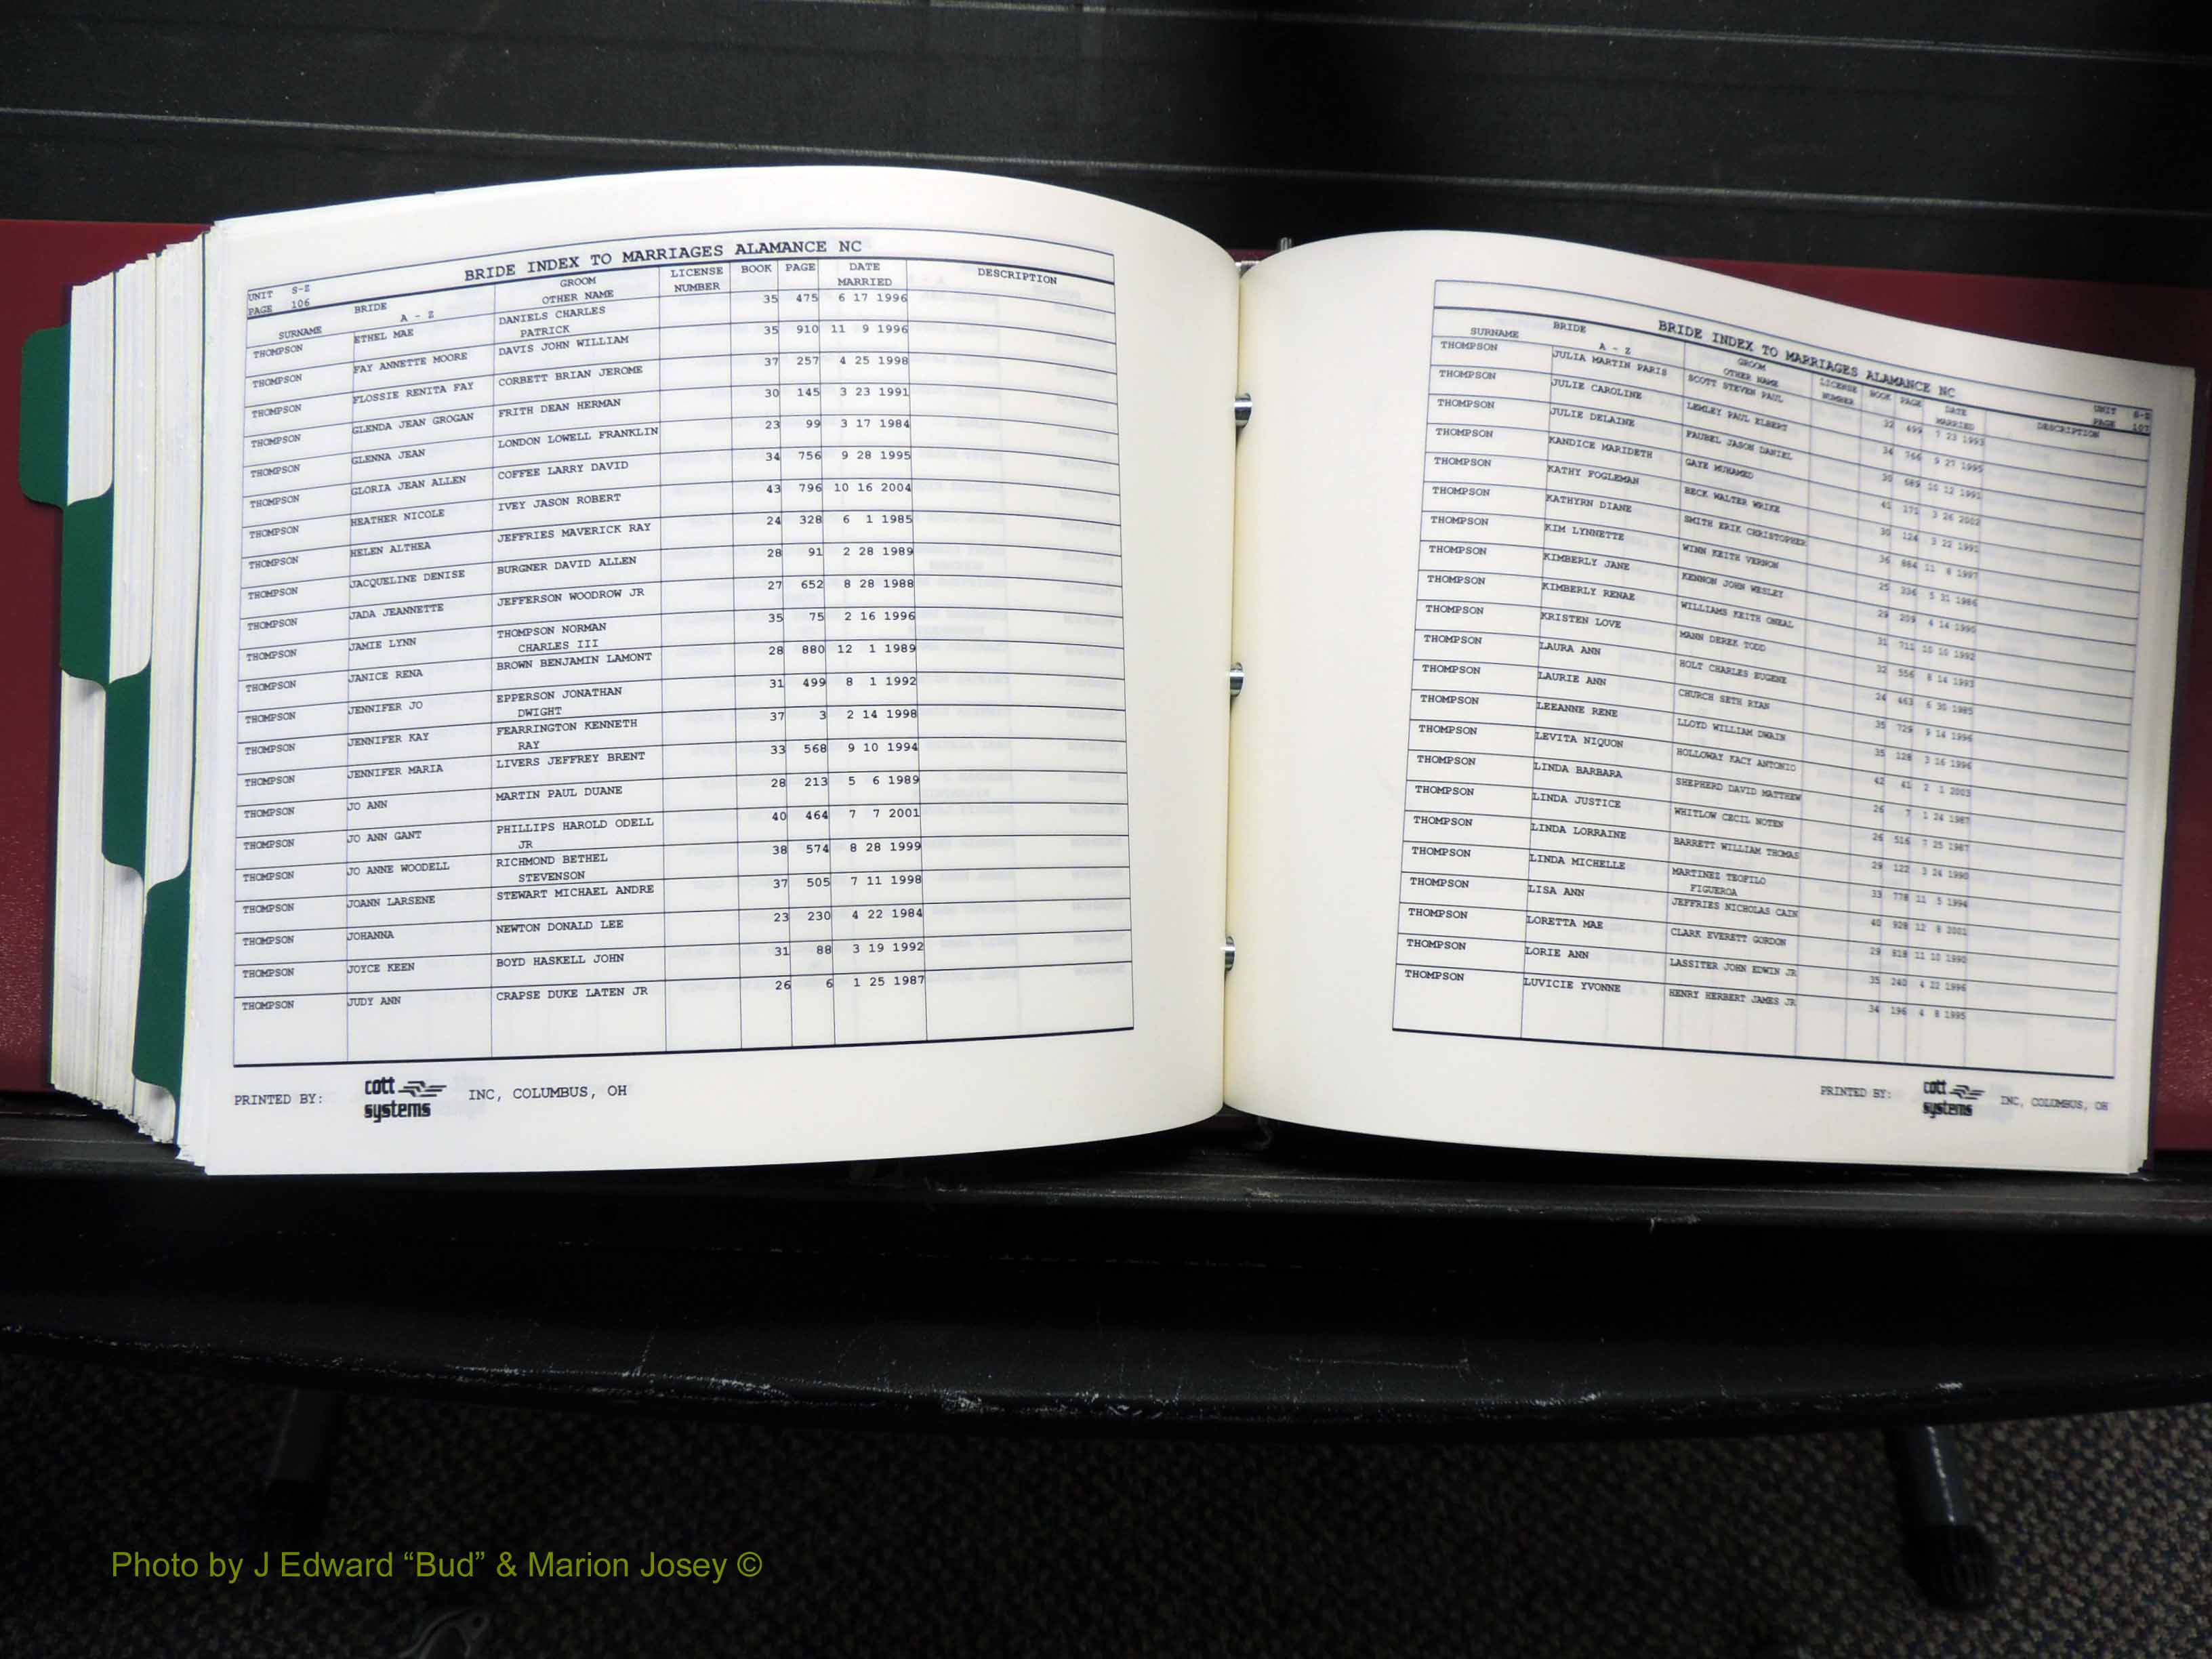 BRIDE INDEX TO MARRIAGES ALAMANCE NC
UNIT S-Z
PAGE 106
SURNAME BRIDE A - Z GROOM OTHER NAME LICENSE NUMBER BOOK PAGE DATE MARRIED DESCRIPTION
THOMPSON ETHEL MAE DANIELS CHARLES PATRICK 35 475 6 17 1996
THOMPSON FAY ANNETTE MOORE DAVIS JOHN WILLIAM 35 910 11 9 1996
THOMPSON FLOSSIE RENITA FAY CORBETT BRIAN JEROME 37 257 4 25 1998
THOMPSON GLENDA JEAN GROGAN FRITH DEAN HERMAN 30 145 3 23 1991
THOMPSON GLENNA JEAN LONDON LOWELL FRANKLIN 23 99 3 17 1984
THOMPSON GLORIA JEAN ALLEN COFFEE LARRY DAVID 34 756 9 28 1995
THOMPSON HEATHER NICOLE IVEY JASON ROBERT 43 796 10 16 2004
THOMPSON HELEN ALTHEA JEFFRIES MAVERICK RAY 24 328 6 1 1985
THOMPSON JACQUELINE DENISE BURGNER DAVID ALLEN 28 91 2 28 1989
THOMPSON JADA JEANNETTE JEFFERSON WOODROW JR 27 652 8 28 1988
THOMPSON JAMIE LYNN THOMPSON NORMAN CHARLES III 35 75 2 16 1996
THOMPSON JANICE RENA BROWN BENJAMIN LAMONT 28 880 12 1 1989
THOMPSON JENNIFER JO EPPERSON JONATHAN DWIGHT 31 499 8 1 1992
THOMPSON JENNIFER KAY FEARRINGTON KENNETH RAY 37 3 2 14 1998
THOMPSON JENNIFER MARIA LIVERS JEFFREY BRENT 33 568 9 10 1994
THOMPSON JO ANN MARTIN PAUL DUANE 28 213 5 6 1989
THOMPSON JO ANN GANT PHILLIPS HAROLD ODELL JR 40 464 7 7 2001
THOMPSON JO ANNE WOODELL RICHMOND BETHEL STEVENSON 38 574 8 28 1999
THOMPSON JOANN LARSENE STEWART MICHAEL ANDRE 37 505 7 11 1998
THOMPSON JOHANNA NEWTON DONALD LEE 23 230 4 22 1984
THOMPSON JOYCE KEEN BOYD HASKELL JOHN 31 88 3 19 1992
THOMPSON JUDY ANN CRAPSE DUKE LATEN JR 26 6 1 25 1987
PRINTED BY: cott systems INC, COLUMBUS, OH
BRIDE INDEX TO MARRIAGES ALAMANCE NC
UNIT S-Z
PAGE 107
SURNAME BRIDE A - Z GROOM OTHER NAME LICENSE NUMBER BOOK PAGE DATE MARRIED DESCRIPTION
THOMPSON JULIA MARTIN PARIS SCOTT STEVEN PAUL 32 499 7 23 1993
THOMPSON JULIE CAROLINE LEMLEY PAUL ELBERT 34 766 9 27 1995
THOMPSON JULIE DELAINE FAUBEL JASON DANIEL 30 689 10 12 1991
THOMPSON KANDICE MARIDETH GAYE MUHAMED 41 171 3 26 2002
THOMPSON KATHY FOGLEMAN BECK WALTER WRIKE 30 124 3 22 1991
THOMPSON KATHYRN DIANE SMITH ERIK CHRISTOPHER 36 864 11 8 1997
THOMPSON KIM LYNNETTE WINN KEITH VERNON 25 336 5 31 1986
THOMPSON KIMBERLY JANE KENNON JOHN WESLEY 29 209 4 14 1990
THOMPSON KIMBERLY RENAE WILLIAMS KEITH ONEAL 31 711 10 10 1992
THOMPSON KRISTEN LOVE MANN DEREK TODD 32 556 8 14 1993
THOMPSON LAURA ANN HOLT CHARLES EUGENE 24 463 6 30 1985
THOMPSON LAURIE ANN CHURCH SETH RYAN 35 729 9 14 1996
THOMPSON LEEANNE RENE LLOYD WILLIAM DWAIN 35 128 3 16 1996
THOMPSON LEVITA NIQUON HOLLOWAY KACY ANTONIO 42 41 2 1 2003
THOMPSON LINDA BARBARA SHEPHERD DAVID MATTHEW 26 7 1 24 1987
THOMPSON LINDA JUSTICE WHITLOW CECIL NOTEN 26 516 7 25 1987
THOMPSON LINDA LORRAINE BARRETT WILLIAM THOMAS 29 122 3 24 1990
THOMPSON LINDA MICHELLE MARTINEZ TEOFILO FIGUEROA 33 778 11 5 1994
THOMPSON LISA ANN JEFFRIES NICHOLAS CAIN 40 928 12 8 2001
THOMPSON LORETTA MAE CLARK EVERETT GORDON 29 818 11 10 1990
THOMPSON LORIE ANN LASSITER JOHN EDWIN JR 35 240 4 22 1996
THOMPSON LUVICIE YVONNE HENRY HERBERT JAMES JR 34 196 4 8 1995
PRINTED BY: cott systems INC, COLUMBUS, OH
Photo by J Edward “Bud” & Marion Josey ©